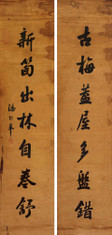 古梅蓋屋多盤錯
新筍出林自卷舒